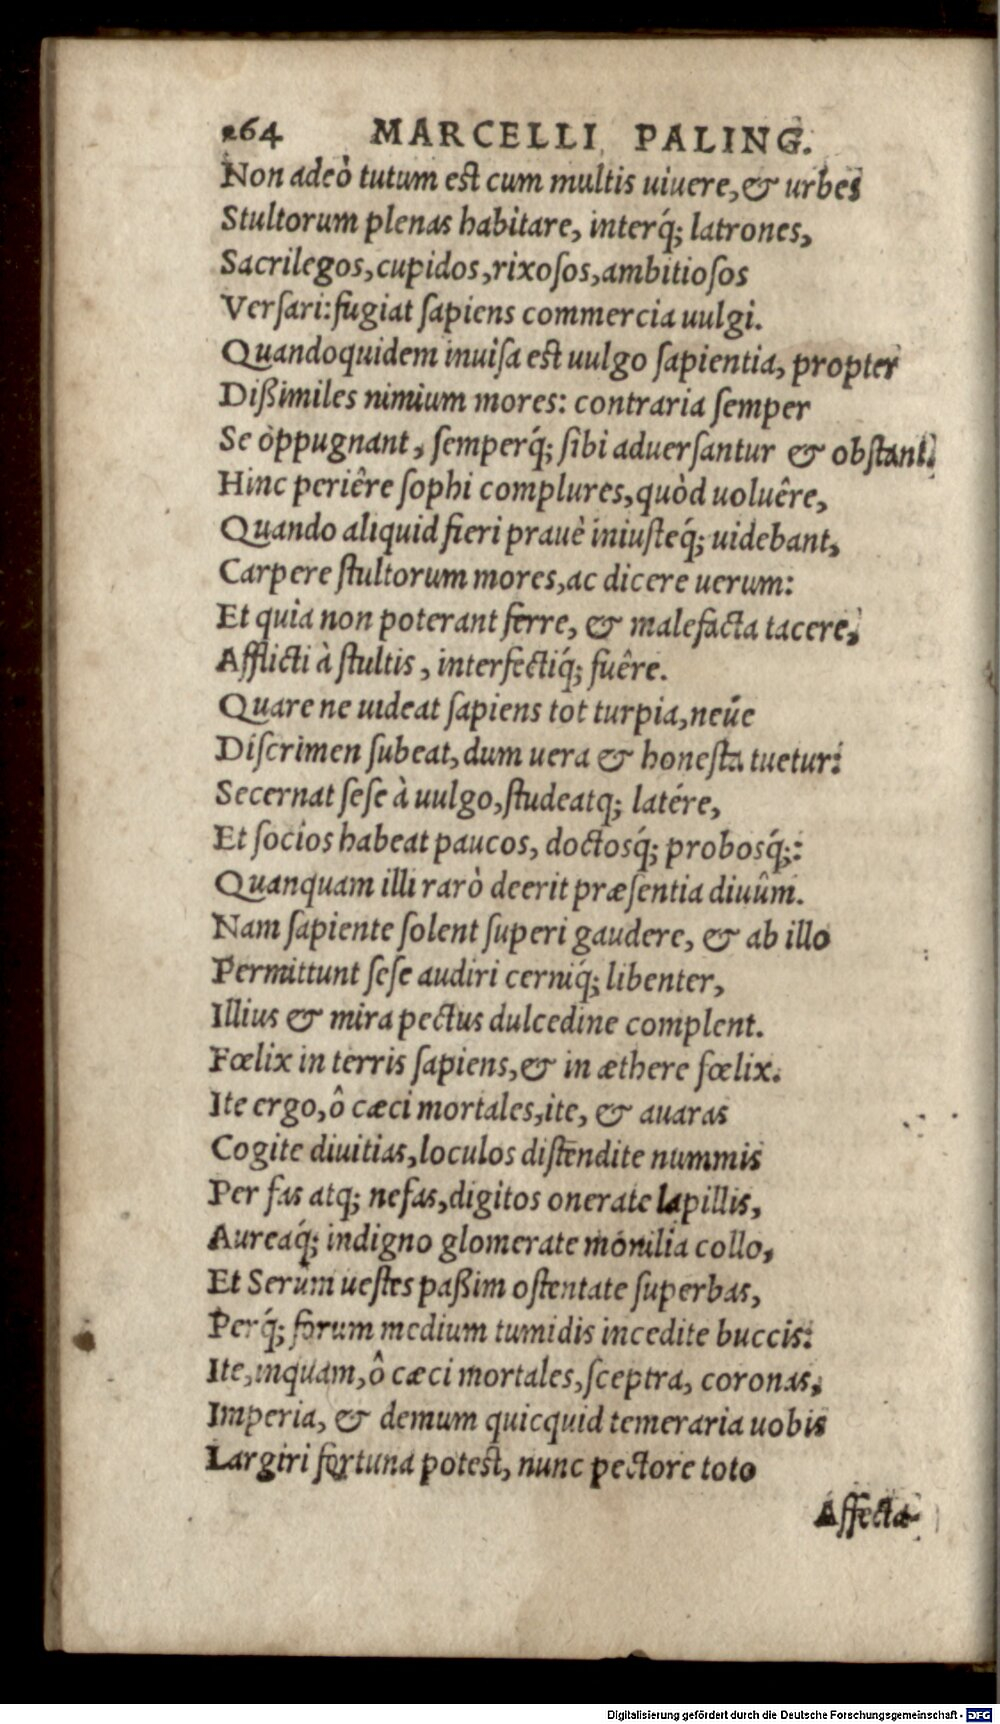 264 MARCELLI PALING.
Non adeò tutum est cum multis uiuere, & urbes
Stultorum plenas habitare, interq́; latrones,
Sacrilegos, cupidos, rixoſos, ambitioſos
Verſari: fugiat ſapiens commercia uulgi.
Quandoquidem inuiſa est uulgo ſapientia, propter
Dißimiles nimium mores: contraria ſemper
Se oppugnant, ſemperq́; ſibi aduerſantur & obſtant.
Hinc periêre ſophi complures, quòd uoluêre,
Quando aliquid fieri prauè iniuſteq́; uidebant,
Carpere ſtultorum mores, ac dicere uerum:
Et quia non poterant ferre, & malefacta tacere,
Afflicti à ſtultis, interfectiq́; fuêre.
Quare ne uideat ſapiens tot turpia, neúe
Diſcrimen ſubeat, dum uera & honeſta tuetur:
Secernat ſeſe à uulgo, ſtudeatq; latére,
Et ſocios habeat paucos, doctosq́; probosq́;:
Quanquam illi rarò deerit præſentia diuûm.
Nam ſapiente ſolent ſuperi gaudere, & ab illo
Permittunt ſeſe audiri cerniq́; libenter,
Illius & mira pectus dulcedine complent.
Fœlix in terris ſapiens, & in æthere fœlix.
Ite ergo, ô cæci mortales, ite, & auaras
Cogite diuitias, loculos diſtendite nummis
Per fas atq; nefas, digitos onerate lapillis,
Aureaq́; indigno glomerate monilia collo,
Et Serum ueſtes paßim oſtentate ſuperbas,
Perq́; forum medium tumidis incedite buccis:
Ite, inquam, ô cæci mortales, ſceptra, coronas,
Imperia, & demum quicquid temeraria uobis
Largiri fortuna potest, nunc pectore toto
Affecta-
Digitalisierung gefördert durch die Deutsche Forschungsgemeinschaft - DFG